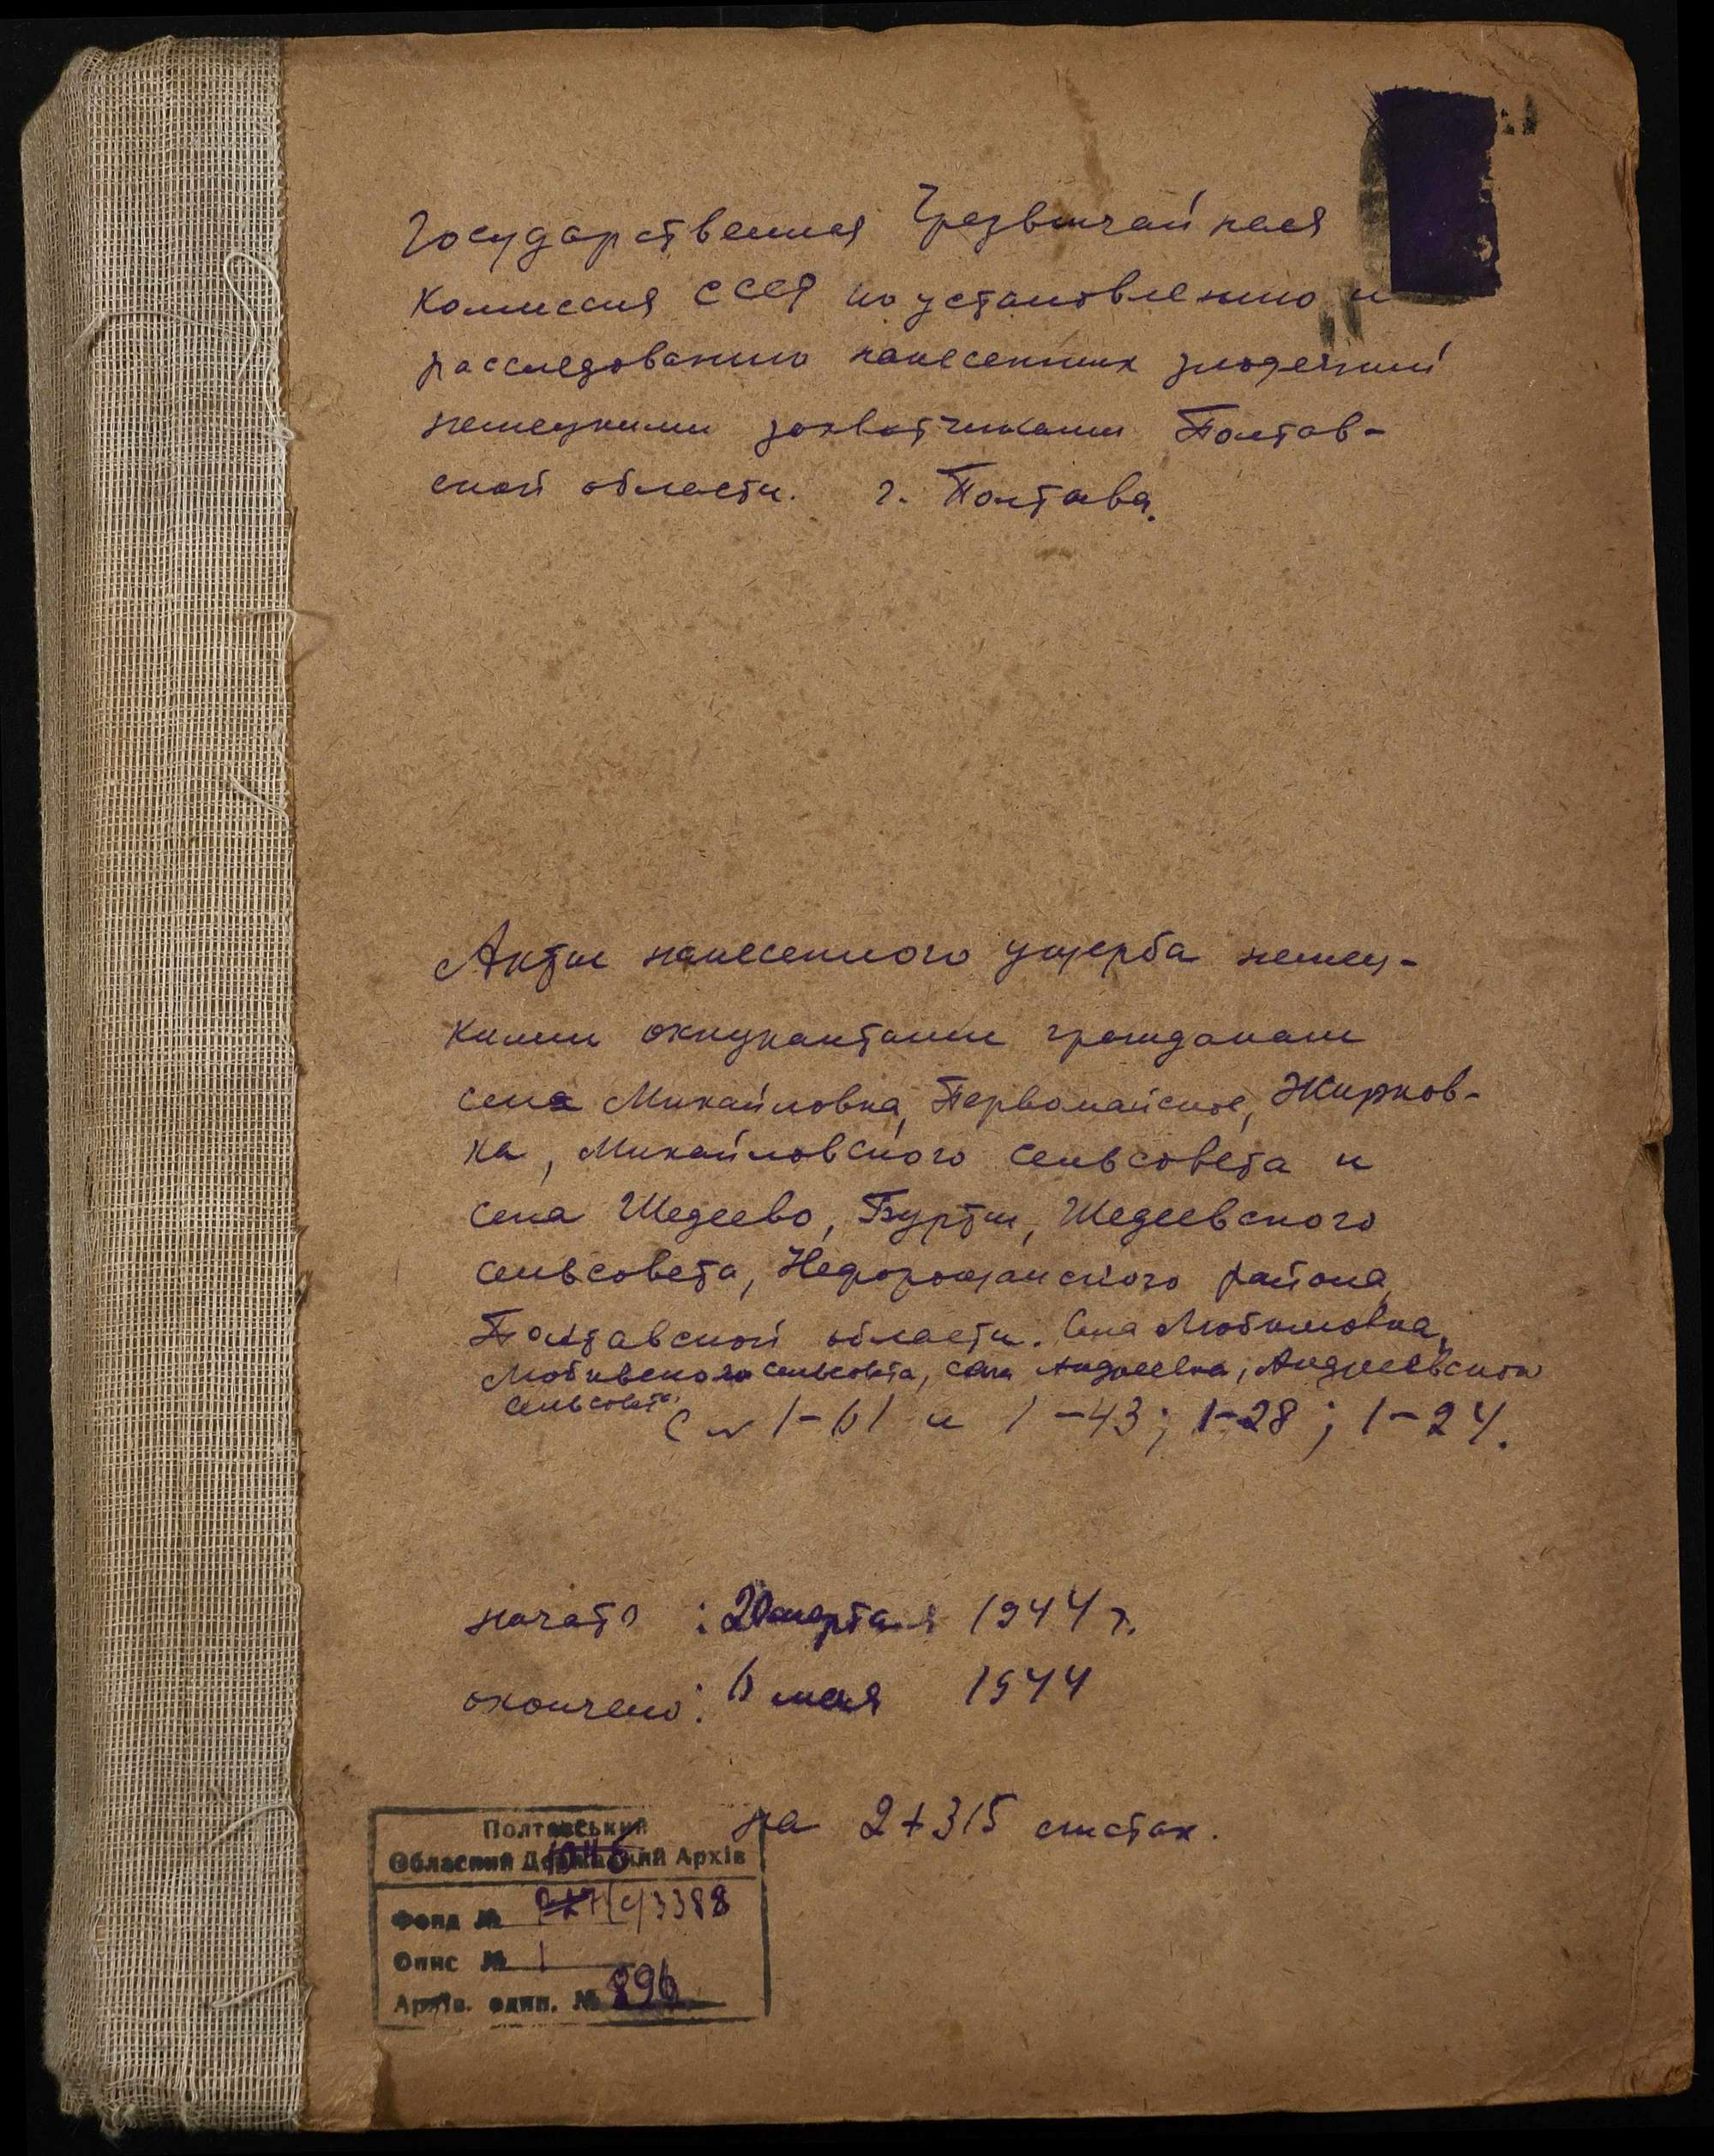 Государственная Чрезвычайная
Комиссия СССР по установлению и
расследованию нанесенных злодеяний
немецкими захватчиками Полтав-
ской области. г. Полтава.
Акты нанесенного ущерба немец-
кими оккупантами гражданам
села Михайловка, Первомайское, Жирков-
ка, Михайловского сельсовета и
села Шедеево, Бурты, Шедеевского
сельсовета, Нефорощанского района,
Полтавской области. Села Любимовка,
сельсовета, села Андреевка, Андреевского
сельсовета
1-61 и 1-43; 1-28; 1-24.
начато : 20 марта 1944 г.
окончено: 6 мая 1944
на 2+315 листах.
Полтавський
Обласний Державний Архів
Фонд № 3388
Опис № 1
Архів. един. № 896